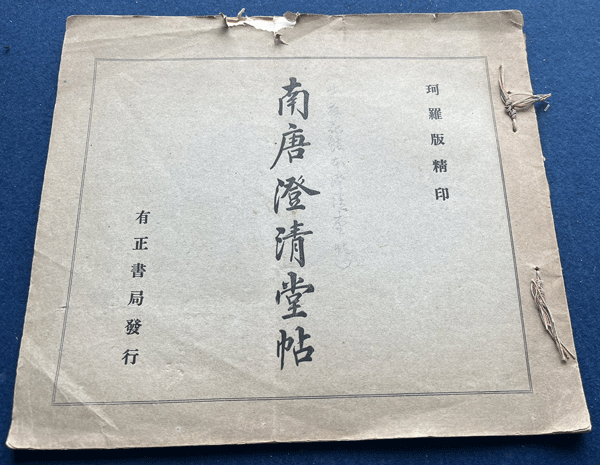 珂羅版精印
南唐澄清堂帖
有正書局發行